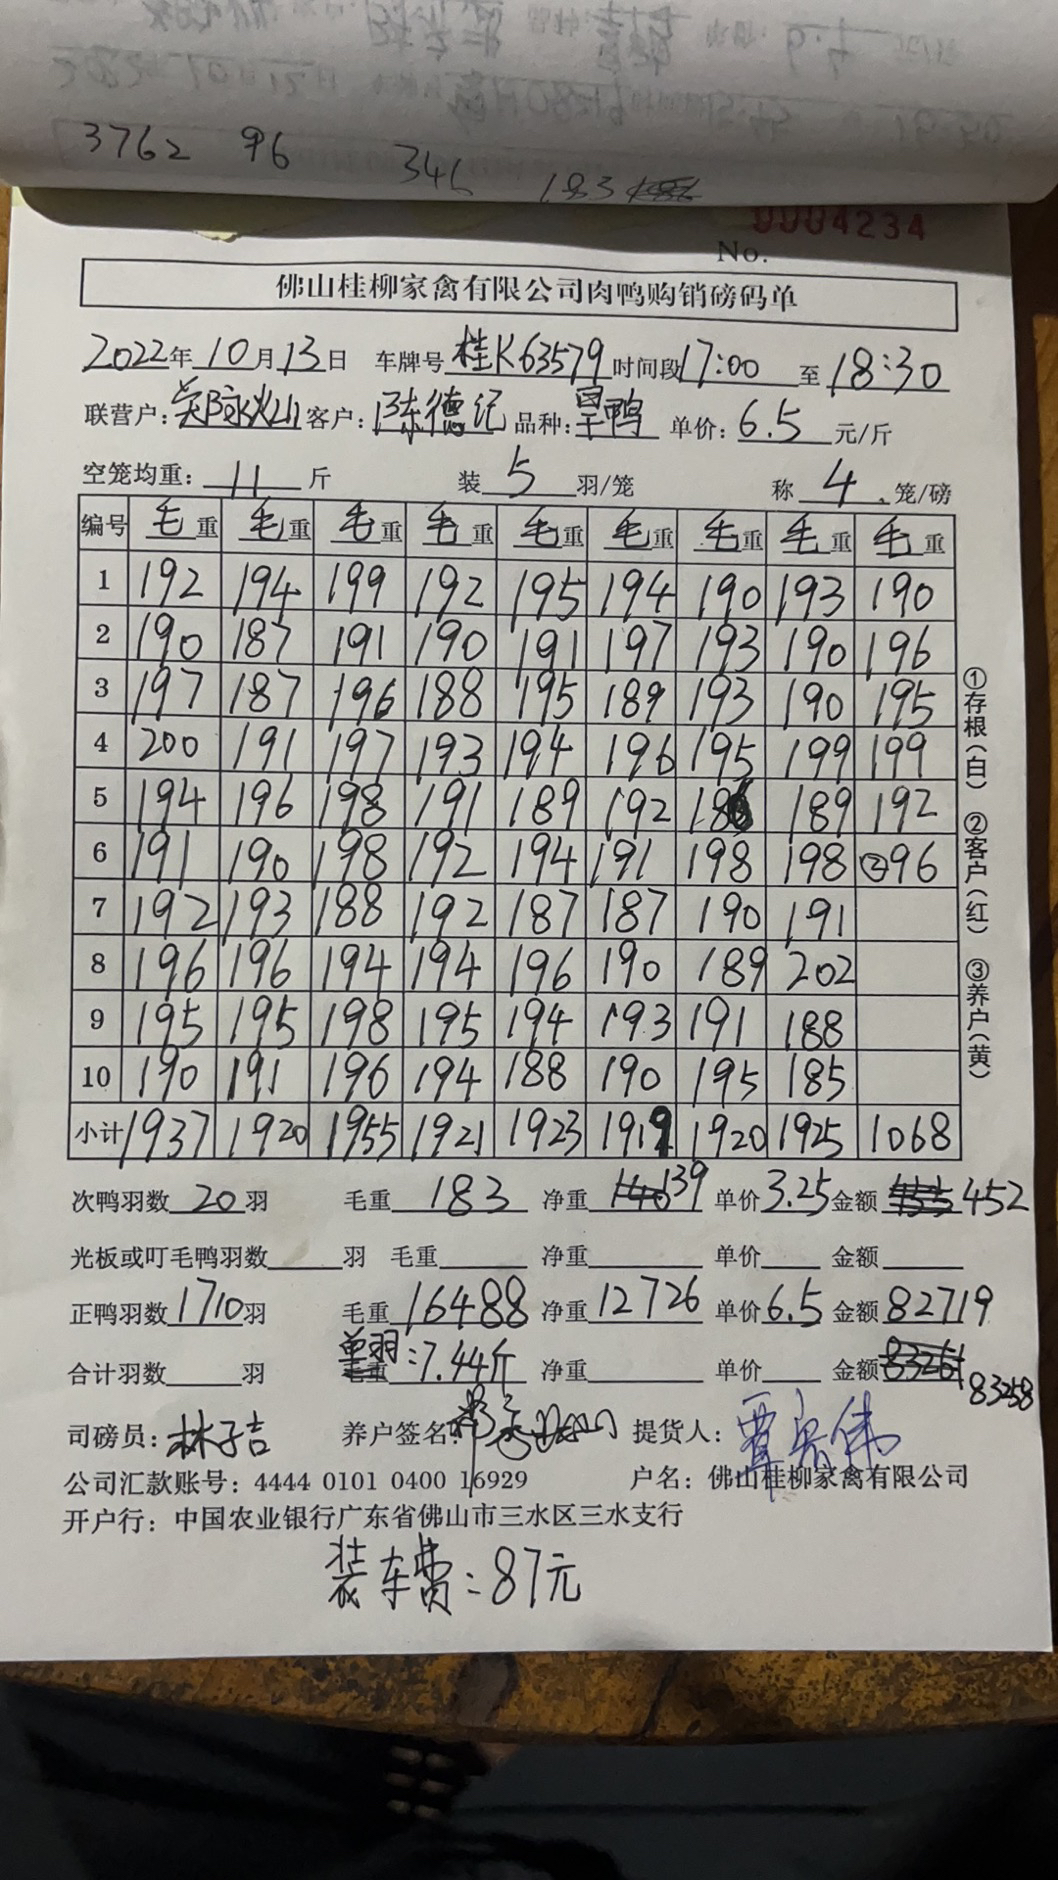 3762 96 346 183
0004234
No.
佛山桂柳家禽有限公司肉鸭购销磅码单
2022年10月13日 车牌号桂K63579时间段17:00至18:30
联营户: 客户:陈德记 品种: 鸭 单价:6.5元/斤
空笼均重:11斤 装5羽/笼 称4笼/磅
编号 毛重 毛重 毛重 毛重 毛重 毛重 毛重 毛重 毛重
1 192 194 199 192 195 194 190 193 190
2 190 187 191 190 191 197 193 190 196
3 197 187 196 188 195 189 193 190 195
4 200 191 197 193 194 196 195 199 199
5 194 196 198 191 189 192 186 189 192
6 191 190 198 192 194 191 198 198 ②96
7 192 193 188 192 187 187 190 191
8 196 196 194 194 196 190 189 202
9 195 195 198 195 194 193 191 188
10 190 191 196 194 188 190 195 185
小计 1937 1920 1955 1921 1923 1919 1920 1925 1068
①存根(白) ②客户(红) ③养户(黄)
次鸭羽数20羽 毛重183 净重139 单价3.25金额452
光板或叮毛鸭羽数 羽 毛重 净重 单价 金额
正鸭羽数1710羽 毛重16488 净重12726 单价6.5金额82719
合计羽数 羽 单羽:7.44斤 净重 单价 金额83261 83258
司磅员:林子吉 养户签名: 提货人:
公司汇款账号:4444 0101 0400 16929 户名:佛山桂柳家禽有限公司
开户行:中国农业银行广东省佛山市三水区三水支行
装车费:87元